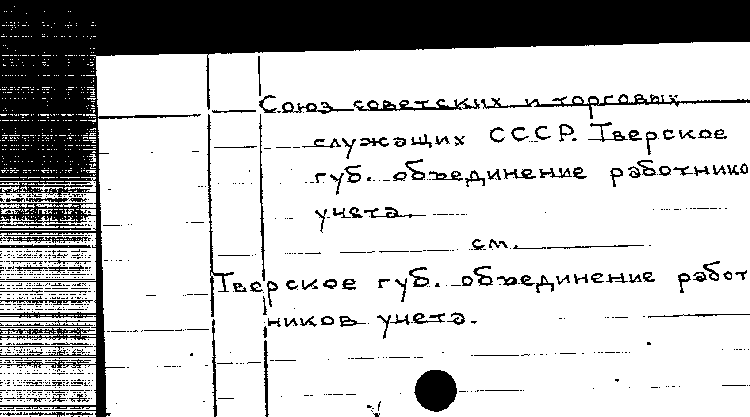 Союз советских и торговых
служащих СССР. Тверское
губ. объединение работнико
учета.
см.
Тверское губ. объединение работ
ников учета.